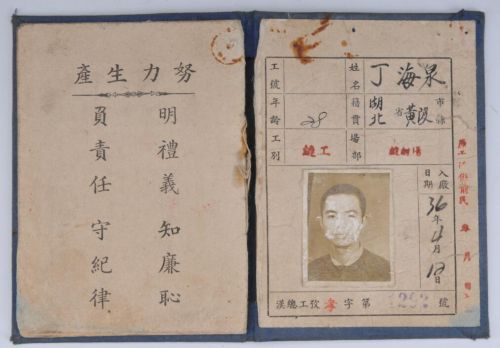 努力生產
明禮義 知廉恥
負責任 守紀律
姓名 丁海泉
工號
籍貫 湖北省黃陂市縣
年齡 28
場部
工別 縫工
入廠日期 36年4月12日
漢總工孜孝字第1262號